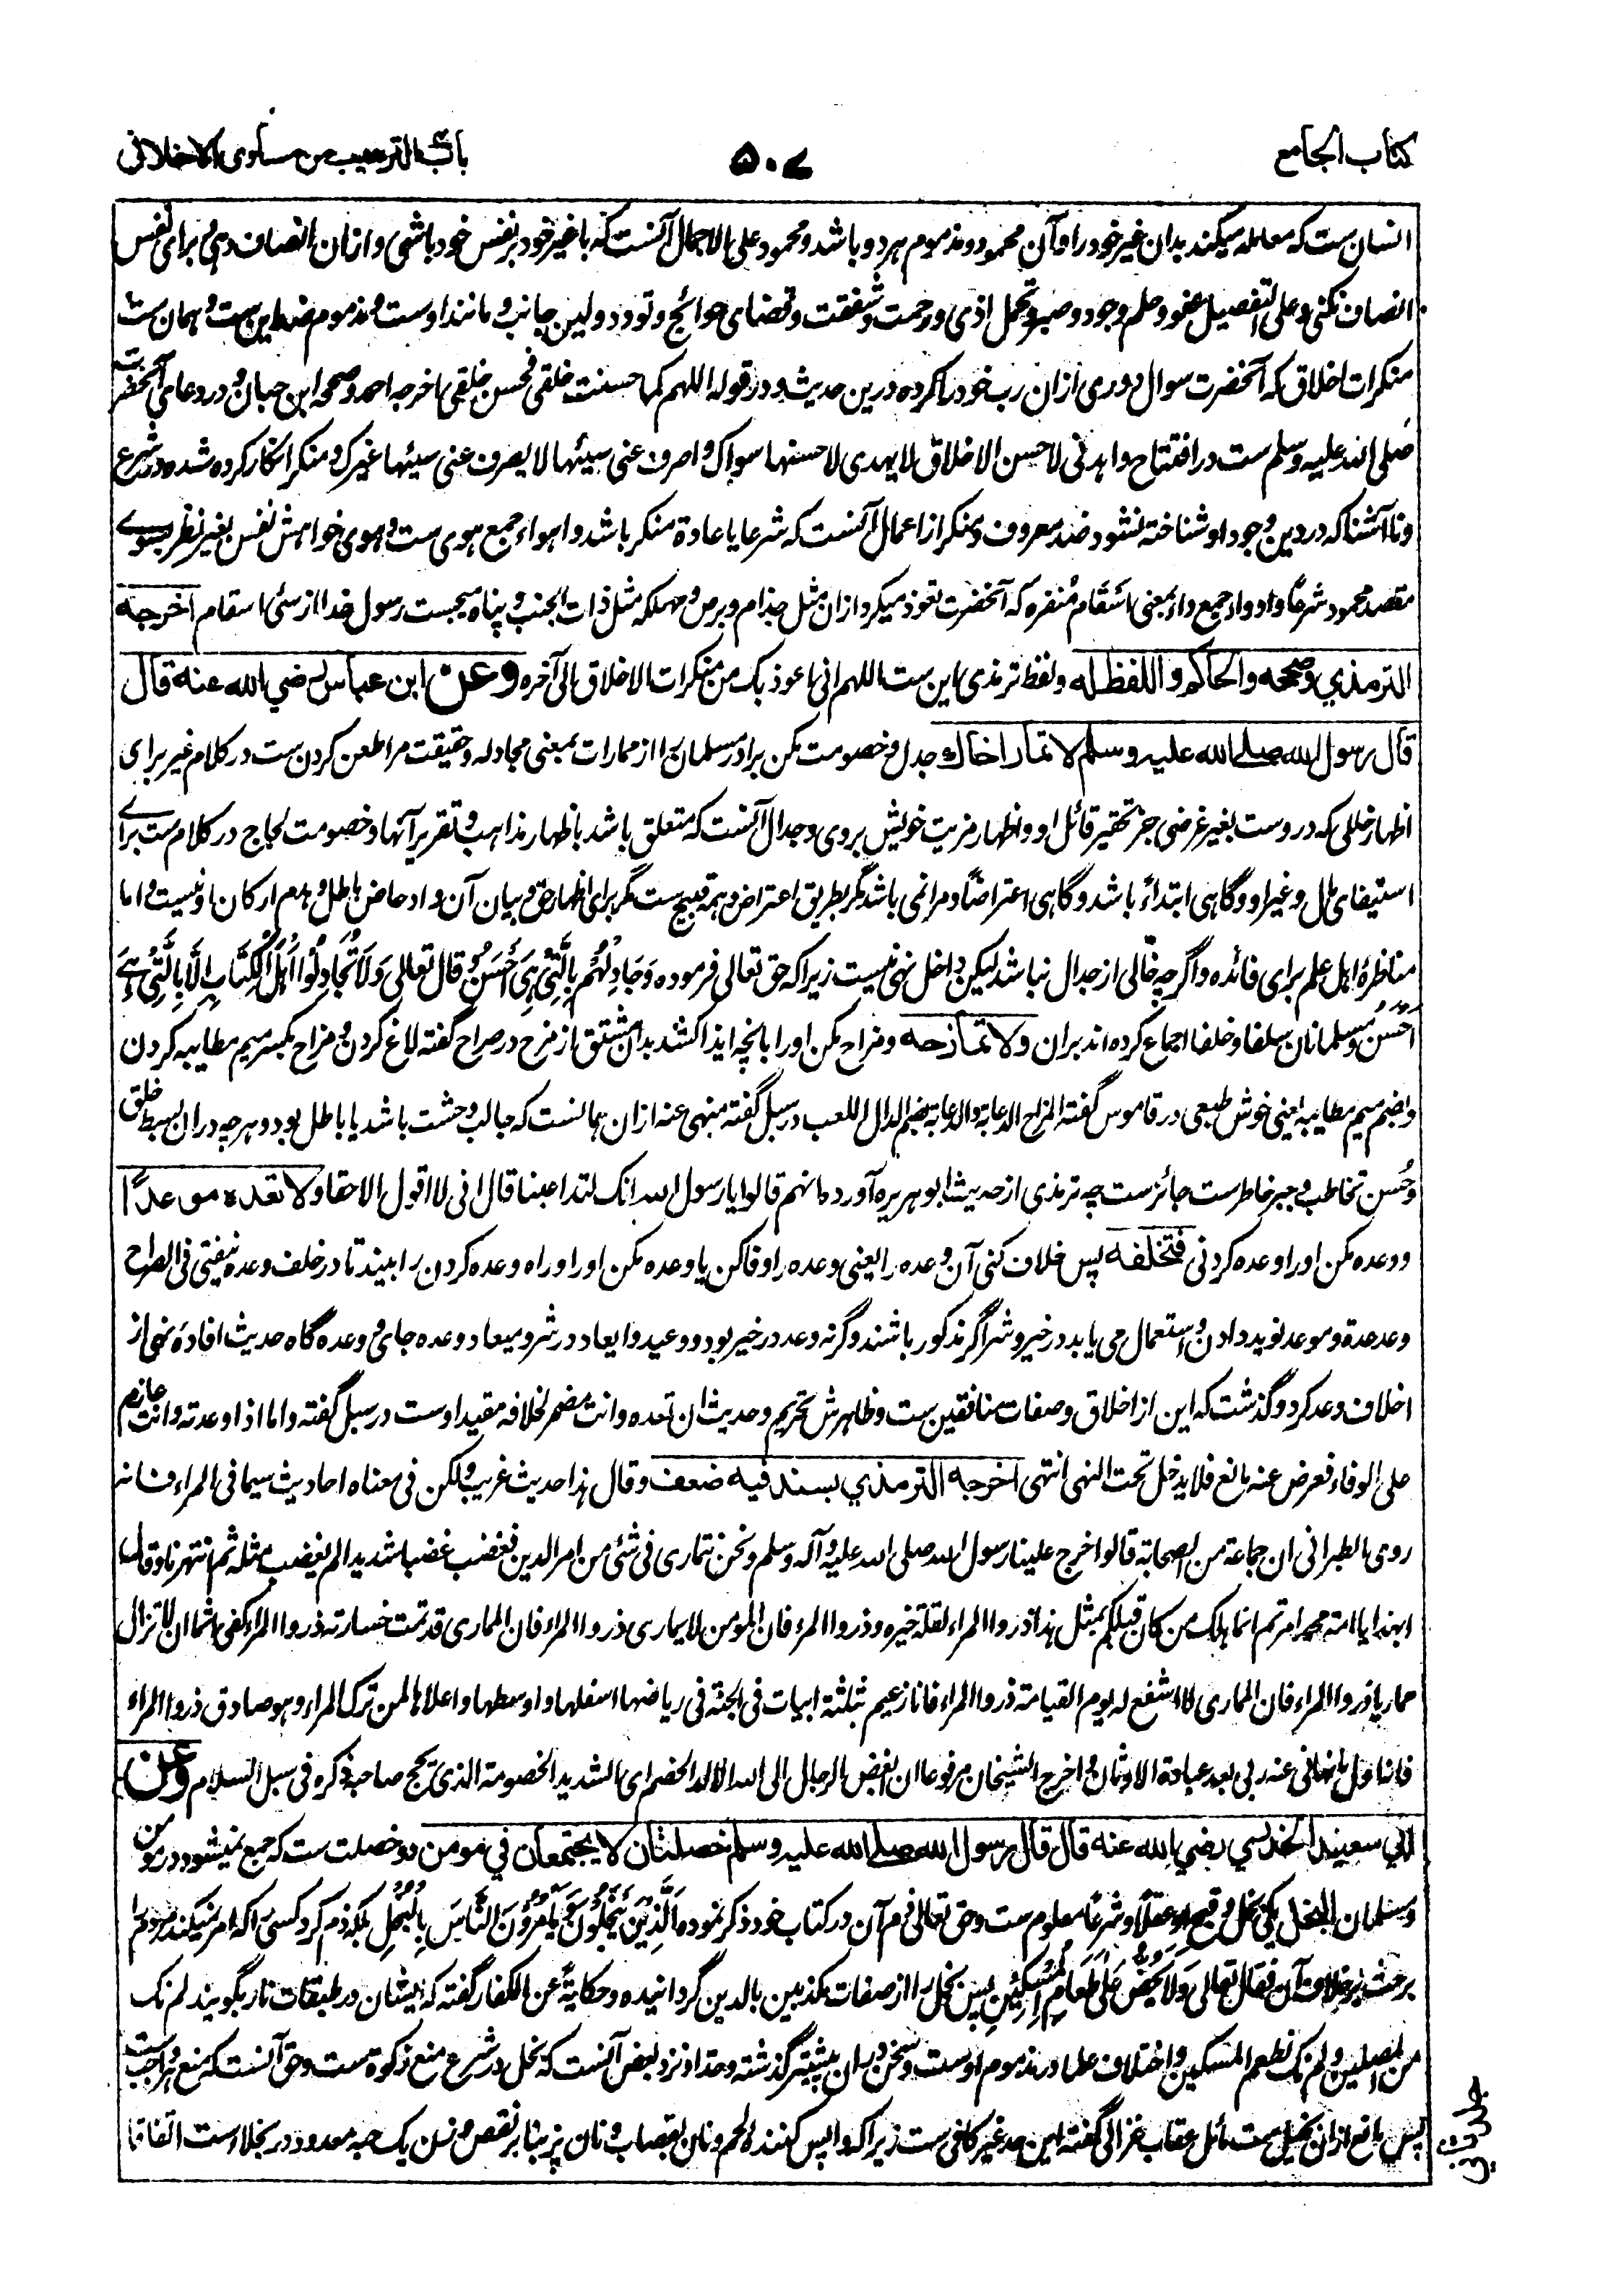 كتاب الجامع
۵۰۷
باب الترهيب من مساوى الاخلاق
انسان ست که معامله میکند بدان غیر خود را و آن محمود و مذموم هر دو باشد و محمود علی الاجمال آنست که با غیر خود بر نفس خود باشی و ازان انصاف دهی و برای نفس
انصاف نکنی و علی التفصیل عفو و حلم وجود و صبر و تحمل اذی و رحمت و شفقت و قضای حوائج و تودد و لین جانب و مانند اوست و مذموم ضد این ست و همان ست
منکرات اخلاق که آنحضرت سوال دوری ازان رب خود را کرده درین حدیث و در قوله اللهم کما حسنت خلقی فحسن خلقی اخرجه احمد و صححه ابن حبان و در دعای آنحضرت
صلی الله علیه وسلم ست در افتتاح واهدنی لاحسن الاخلاق لا یهدی لاحسنها سواک و اصرف عنی سیئها لا یصرف عنی سیئها غیرک و منکر انکار کرده شده در شرع
و نا آشنا که در دین وجود او شناخته نشود ضد معروف و منکر از اعمال آنست که شرعا یا عادة منکر باشد و اهواء جمع هوی ست و هوی خواهش نفس بغیر نظر بسوے
مقصد محمود شرعا و ادواء جمع داء بمعنی اسقام منفره که آنحضرت تعوذ میکرد ازان مثل جذام و برص و مهلکه مثل ذات الجنب و پناه میجست رسول خدا از سئی اسقام اخرجه
الترمذي وصححه والحاكم واللفظ له ولفظ ترمذی این ست اللهم انی اعوذ بک من منکرات الاخلاق الی آخره وعن ابن عباس رضي الله عنه قال
قال رسول الله صلے الله عليه وسلم لا تمار اخاك جدل و خصومت مکن برادر مسلمان را از ممارات بمعنی مجادله و حقیقت مرا طعن کردن ست در کلام غیر برای
اظهار خللی که در وست بغیر غرضی جز تحقیر قائل او و اظهار مزیت خویش بروی و جدال آنست که متعلق باشد باظهار مذاهب و تقریر آنها و خصومت لجاج در کلام ست براے
استیفای مال و غیر او و گاهی ابتداءً باشد و گاهی اعتراضاً و مرا نمی باشد مگر بطریق اعتراض و همه قبیح ست مگر برای اظهار حق و بیان آن و ادحاض باطل و هدم ارکان او نیست و اما
مناظرۀ اهل علم برای فائده و اگرچه خالی از جدال نباشد لیکن داخل نهی نیست زیرا که حق تعالی فرموده وَجَادِلْهُم بِالَّتِي هِيَ أَحْسَنُ و قال تعالی وَلَا تُجَادِلُوا أَهْلَ الْكِتَابِ إِلَّا بِالَّتِي هِيَ
أَحْسَنُ و مسلمانان سلفا و خلفا اجماع کرده اند بران ولا تمازحه و مزاح مکن او را بانچه ایذا کشد بدان مشتق از مزح در صراح گفته لاغ کردن و مزاح بکسر میم مطایبه کردن
و بضم میم مطایبه یعنی خوش طبعی در قاموس گفته المزاح الدعابة والدعابة بضم الدال اللعب در سبل گفته منهی عنه ازان همانست که جالب وحشت باشد یا باطل بود و هرچه دران بسط خلق
و حُسن تخاطب و جبر خاطر ست جائز ست چه ترمذی از حدیث ابو هریره آورده انهم قالوا یا رسول الله انک لتداعبنا قال انی لا اقول الا حقا ولا تعده موعدًا
و وعده مکن او را وعده کردنی فتخلفه پس خلاف کنی آن وعده را یعنی وعده را وفا کن یا وعده مکن او را و راه وعده کردن را ببند تا در خلف وعده نیفتی فی الصراح
وعد عدة و موعد نوید دادن و استعمال می یابد در خیر و شر اگر مذکور باشند و گرنه وعد در خیر بود و وعید و ایعاد در شر و میعاد وعده جای و وعده گاه حدیث افادۀ نهی از
اخلاف وعد کرد و گذشت که این از اخلاق و صفات منافقین ست و ظاهرش تحریم و حدیث ان تعده و انت مضمر لخلافه مقید اوست در سبل گفته و اما اذا وعدته و انت عازم
علی الوفاء فعرض عنه مانع فلا یدخل تحت النهی انتهی اخرجه الترمذي بسند فيه ضعف و قال هذا حدیث غریب و لکن فی معناه احادیث سیما فی المراء فانه
روی الطبرانی ان جماعة من الصحابة قالوا خرج علینا رسول الله صلی الله علیه و آله وسلم و نحن نتماری فی شئی من امر الدین فغضب غضبا شدیدا لم یغضب مثله ثم انتهرنا و قال
ابهذا یا امة محمد امرتم انما هلک من کان قبلکم بمثل هذا ذروا المراء لقلة خیره و ذروا المراء فان المؤمن لا یماری ذروا المراء فان المماری قد تمت خسارته ذروا المراء کفی اثما ان لا تزال
مماریا ذروا المراء فان المماری لا اشفع له یوم القیامة ذروا المراء فانا زعیم بثلثة ابیات فی الجنة فی ریاضها اسفلها و اوسطها و اعلاها لمن ترک المراء و هو صادق ذروا المراء
فانه اول ما نهانی عنه ربی بعد عبادة الاوثان و اخرج الشیخان مرفوعا ان ابغض الرجال الی الله الالد الخصم ای الشدید الخصومة الذی یحج صاحبه ذکره فی سبل السلام وعن
ابي سعيد الخدري رضي الله عنه قال قال رسول الله صلے الله عليه وسلم خصلتان لا يجتمعان في مومن دو خصلت ست که جمع نمیشود در مومن
و مسلمان البخل یکی بخل و قبح او عقلاً و شرعاً معلوم ست و حق تعالی ذم آن در کتاب خود ذکر نموده الَّذِينَ يَبْخَلُونَ وَيَأْمُرُونَ النَّاسَ بِالْبُخْلِ بلکه ذم کرد کسی را که امر نمیکند مردم را
بر حث بر خلاف آن فقال تعالی وَلَا يَحُضُّ عَلَىٰ طَعَامِ الْمِسْكِينِ پس بخل را از صفات مکذبین بالدین گردانیده و حکایةً عن الکفار گفته که ایشان در طبقات نار بگویند لم نک
من المصلین و لم نک نطعم المسکین و اختلاف علما در مذموم اوست و سخن دران پیشتر گذشته و حد او نزد بعض آنست که بخل در شرع منع زکوة ست و حق آنست که منع هر واجب ست
پس مانع ازان بخیل ست نائل عقاب غزالی گفته این حد غیر کافی ست زیرا که واپس کننده لحم و نان بقصاب و نان پز بنا بر نقص وزن یک حبه معدود در بخلاست اتفاقا